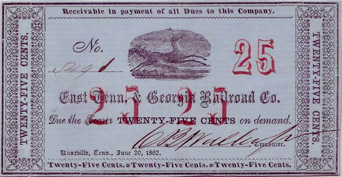 Receivable in payment of all Dues to this Company.
TWENTY-FIVE CENTS.
No.
25
TWENTY-FIVE CENTS.
East Tenn. & Georgia Railroad Co.
25 25
Due the Bearer TWENTY-FIVE CENTS on demand.
Treasurer.
Knoxville, Tenn., June 20, 1862.
Twenty-Five Cents. Twenty-Five Cents. Twenty-Five Cents.